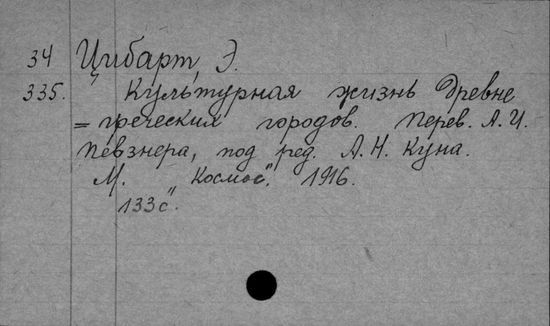 34 Цибарт, Э.
335. Культурная жизнь Древне
=греческих городов. Перев. А.И.
Певзнера, под ред. А.Н. Куна.
М. Космос". 1916.
133с".